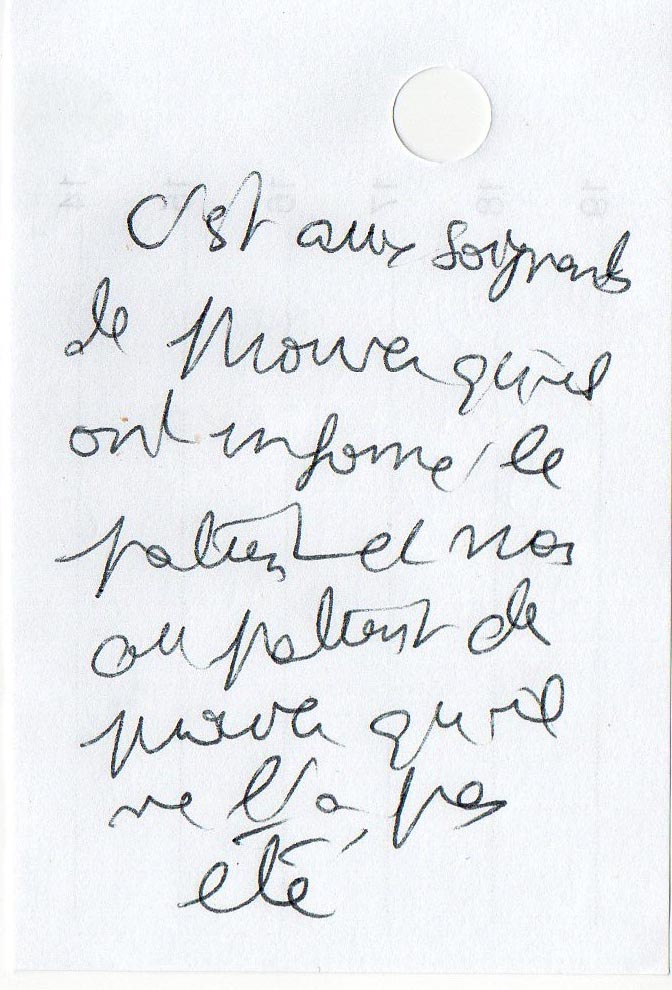 C'est aux soignants
de prouver qu'ils
ont informé le
patient et non
au patient de
prouver qu'il
ne l'a pas
été